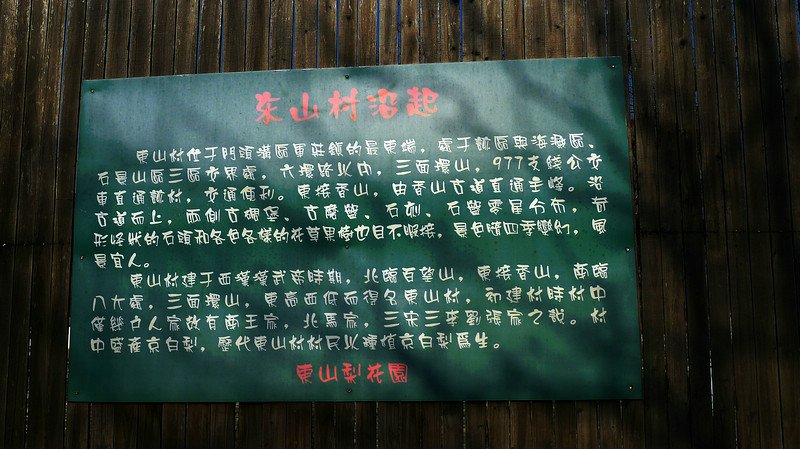 东山村沿起
東山村位于門頭溝區軍莊鎮的最東端，處于該區與海澱區、
石景山區三區交界處，六環路以中，三面環山，977支綫公交
車直通該村，交通便利。東接香山，由香山古道直通主峰。沿
古道而上，兩側古碉堡、古廟營、石刻、石營零星分布，奇
形怪狀的石頭和各色各樣的花草果樹也目不暇接，景色隨四季變幻，風
景宜人。
東山村建于西漢漢武帝時期，北臨百望山，東接香山，南臨
八大處，三面環山，東高西低而得名東山村，初建村時村中
僅幾户人家故有南王家，北馬家，三宋三李劉張家之説。村
中盛產京白梨，歷代東山村村民以種植京白梨爲生。
東山梨花園